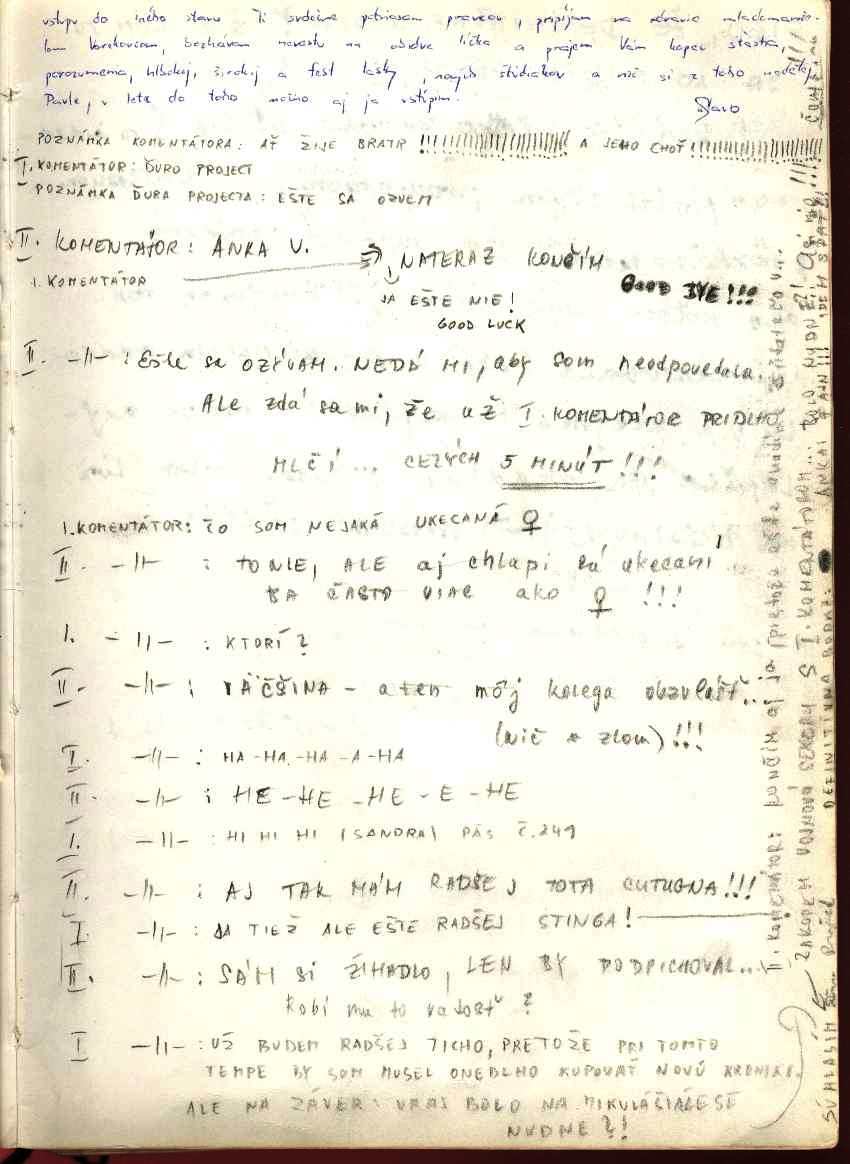 vstupu do iného stavu Ti srdečne potriasam pravicou, pripíjam na zdravie mladomanže-
lom bozkávam nevestu na obidve líčka a prajem Vám kopec šťastia,
porozumenia, hlbokej, širokej a fest lásky, a nič si z toho nerob
Pavle, v lete do toho možno aj ja vstúpim.
Slavo
POZNÁMKA KOMENTÁTORA: AŤ ŽIJE BRATIR !!!!!!!!!!!!!!!!!!!! A JEHO CHOŤ !!!!!!!!!!!!!!!!!!!!
I. KOMENTÁTOR: ĎURO PROJECT
POZNÁMKA ĎURA PROJECTA: EŠTE SA OZVEM
II. KOMENTÁTOR: ANKA V. NATERAZ KONČÍM
GOOD BYE!!!
I. KOMENTÁTOR
JA EŠTE NIE!
GOOD LUCK
II. -||- : Ešte sa OZÝVAM. NEDÁ MI, aby som neodpovedala.
ALE zdá sa mi, že už I. KOMENTÁTOR PRIDLHO
MLČÍ... CELÝCH 5 MINÚT!!!
I. KOMENTÁTOR: ČO SOM NEJAKÁ UKECANÁ ♀
II. -||- : TO NIE, ALE aj chlapi sú ukecaní
BA ČASTO VIAC ako ♀ !!!
I. -||- : KTORÍ?
II. -||- : VÄČŠINA - a ten môj kolega obzvlášť...
(nič v zlom)!!!
I. -||- : HA-HA-HA-A-HA
II. -||- : HE-HE-HE-E-HE
I. -||- : HI HI HI (SANDRA) PÁS Č.249
II. -||- : AJ TAK MÁM RADŠEJ TOTA CUTUGNA!!!
I. -||- : JA TIEŽ ALE EŠTE RADŠEJ STINGA!
II. -||- : SÁM SI ŽIHADLO, LEN BY PODPICHOVAL...
Robí mu to radosť?
I -||- : UŽ BUDEM RADŠEJ TICHO, PRETOŽE PRI TOMTO
TEMPE BY SOM MUSEL ONEDLHO KUPOVAŤ NOVÚ KRONIKU.
ALE NA ZÁVER: VRAJ BOLO NA MIKULÁŠIÁLESE
NUDNE?!
II. KOMENTÁTOR: KONČÍM aj ja (pretože ešte
S I. KOMENTÁTOROM... BOLO NUDNE?! Asi nie!!!
DEFINITÍVNA BODKA: ANKA! FAJN!!! IDEM SPAŤ!
SÚHLASÍM